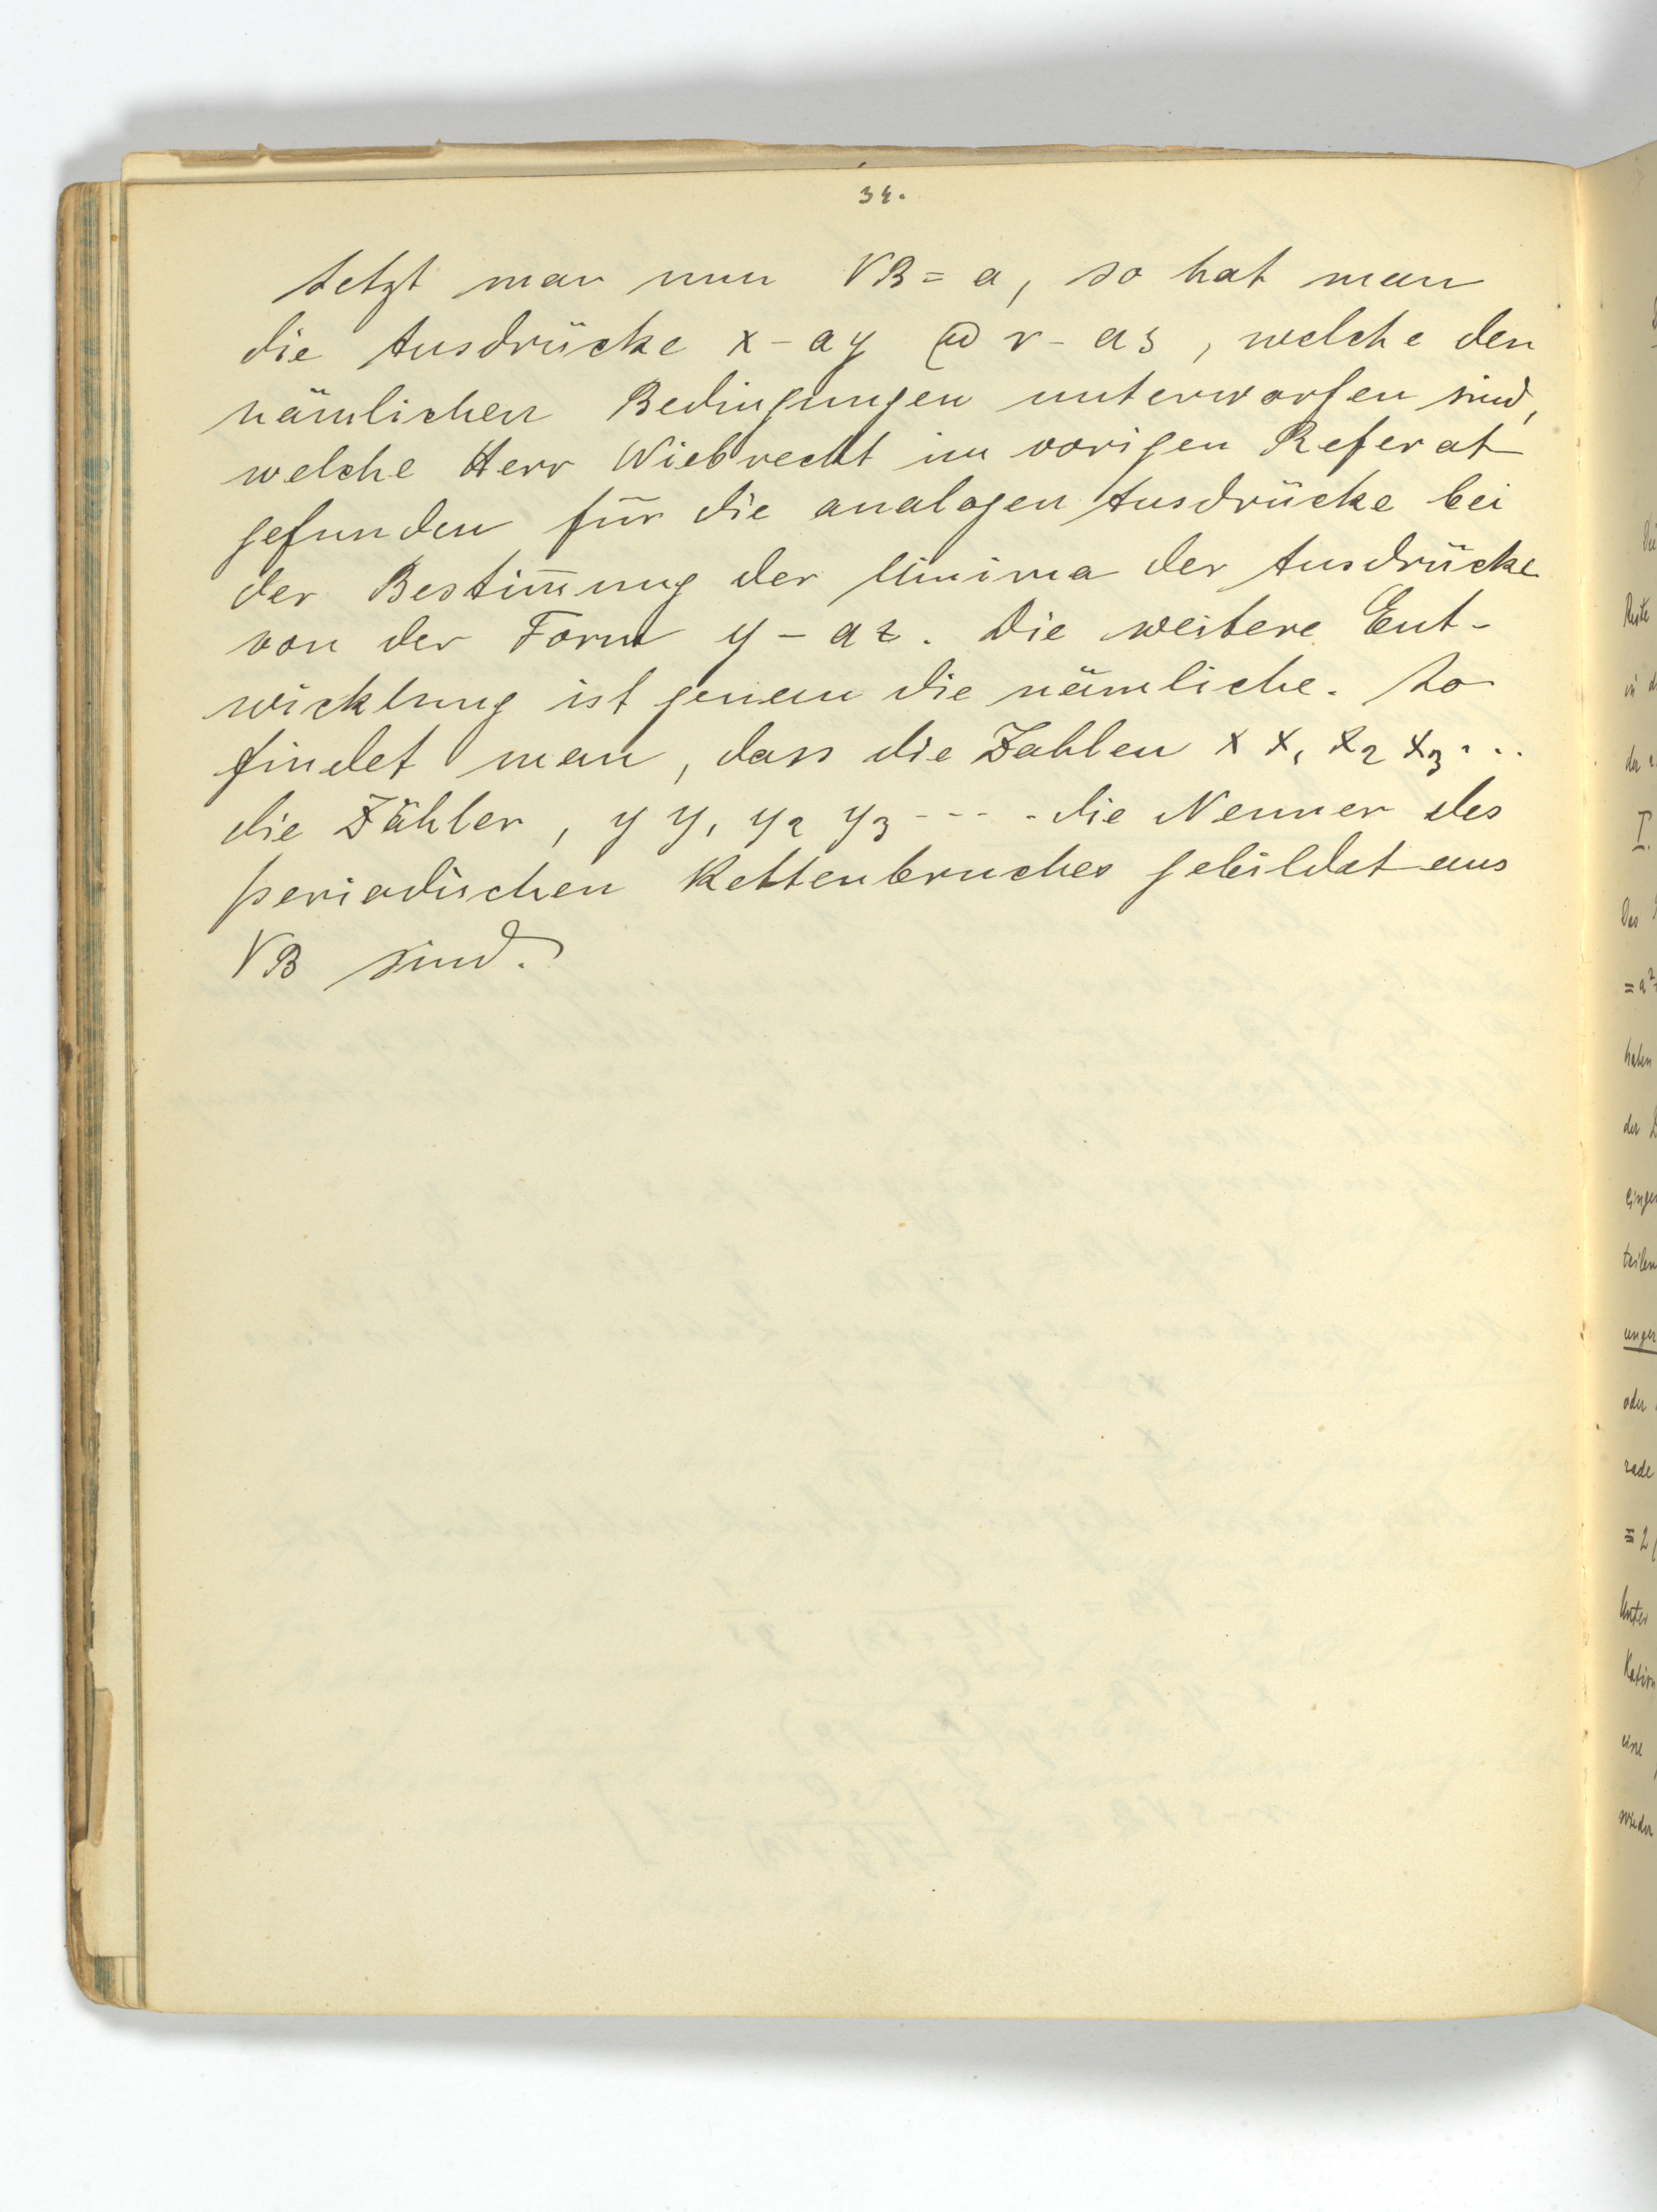 34.
Setzt man nun √B = a, so hat man
die Ausdrücke x - ay @ r - as, welche den
nämlichen Bedingungen unterworfen sind,
welche Herr Wiebrecht im vorigen Referat
gefunden für die analogen Ausdrücke bei
der Bestim̄ung der Minima der Ausdrücke
von der Form y - az. Die weitere Ent-
wicklung ist genau die nämliche. So
findet man, dass die Zahlen x x₁ x₂ x₃ ...
die Zähler, y y₁ y₂ y₃ ---- die Nenner des
periodischen Kettenbruches gebildet aus
√B sind.